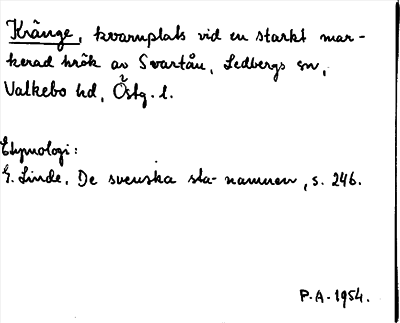 Kränge, kvarnplats vid en starkt mar-
kerad krök av Svartån, Ledbergs sn,
Valkebo hd, Östg. l.
Etymologi:
G. Linde, De svenska sta-namnen, s. 246.
P.A. 1954.